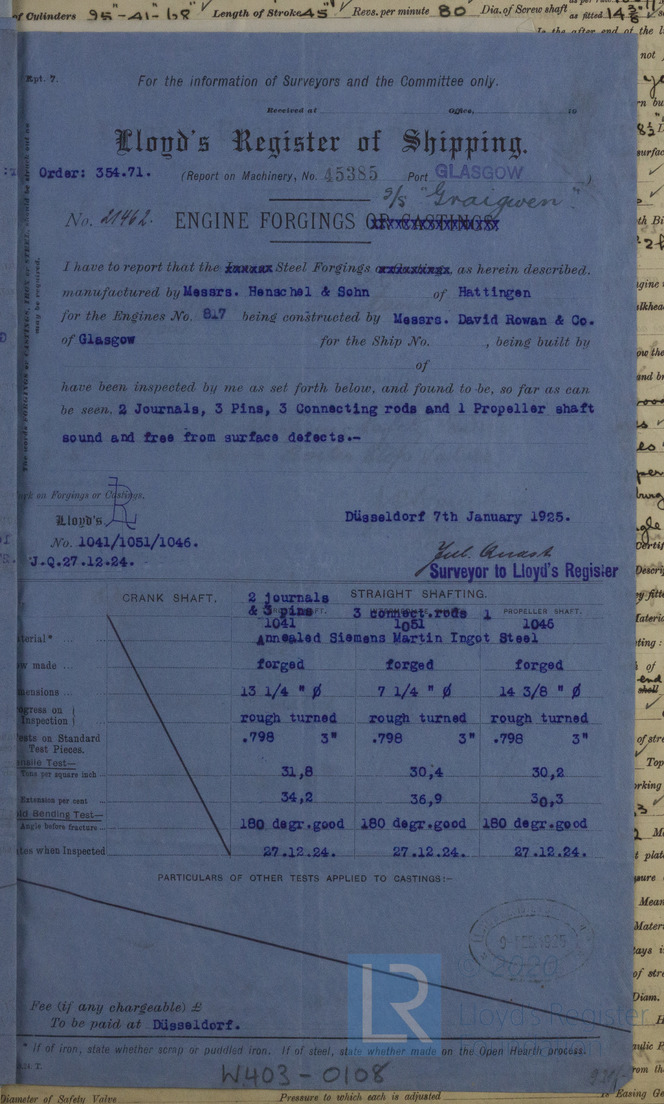 of Cylinders Length of Stroke 45" Revs. per minute 80 Dia. of Screw shaft as fitted 14 3/8
Rpt. 7.
For the information of Surveyors and the Committee only.
Received at Office, 19
Lloyd's Register of Shipping.
Order: 354.71. (Report on Machinery, No. 45385 Port GLASGOW )
s/s "Graigwen"
No. 21462. ENGINE FORGINGS OR CASTINGS
I have to report that the Steel Forgings as herein described,
manufactured by Messrs. Henschel & Sohn of Hattingen
for the Engines No. 817 being constructed by Messrs. David Rowan & Co.
of Glasgow for the Ship No. , being built by
of
have been inspected by me as set forth below, and found to be, so far as can
be seen, 2 Journals, 3 Pins, 3 Connecting rods and 1 Propeller shaft
sound and free from surface defects.-
The words FORGINGS or CASTINGS, IRON or STEEL, should be struck out as
may be required.
on Forgings or Castings.
Lloyd's LR
Düsseldorf 7th January 1925.
No. 1041/1051/1046.
J.Q.27.12.24.
Surveyor to Lloyd's Register
CRANK SHAFT. STRAIGHT SHAFTING.
2 journals
& 3 pins 3 connect.rods 1 PROPELLER SHAFT.
1041 1051 1046
Material* ... Annealed Siemens Martin Ingot Steel
made ... forged forged forged
... 13 1/4 " Ø 7 1/4 " Ø 14 3/8 " Ø
Progress on
Inspection rough turned rough turned rough turned
Tests on Standard
Test Pieces. .798 3" .798 3" .798 3"
Tensile Test—
Tons per square inch 31,8 30,4 30,2
Extension per cent 34,2 36,9 30,3
Cold Bending Test—
Angle before fracture... 180 degr.good 180 degr.good 180 degr.good
when Inspected 27.12.24. 27.12.24. 27.12.24.
PARTICULARS OF OTHER TESTS APPLIED TO CASTINGS:—
9 FEB 1925
© 2020
LR Lloyd's Register
Fee (if any chargeable) £
To be paid at Düsseldorf.
* If of iron, state whether scrap or puddled iron. If of steel, state whether made on the Open Hearth process.
W403-0108
Diameter of Safety Valve Pressure to which each is adjusted Is Easing